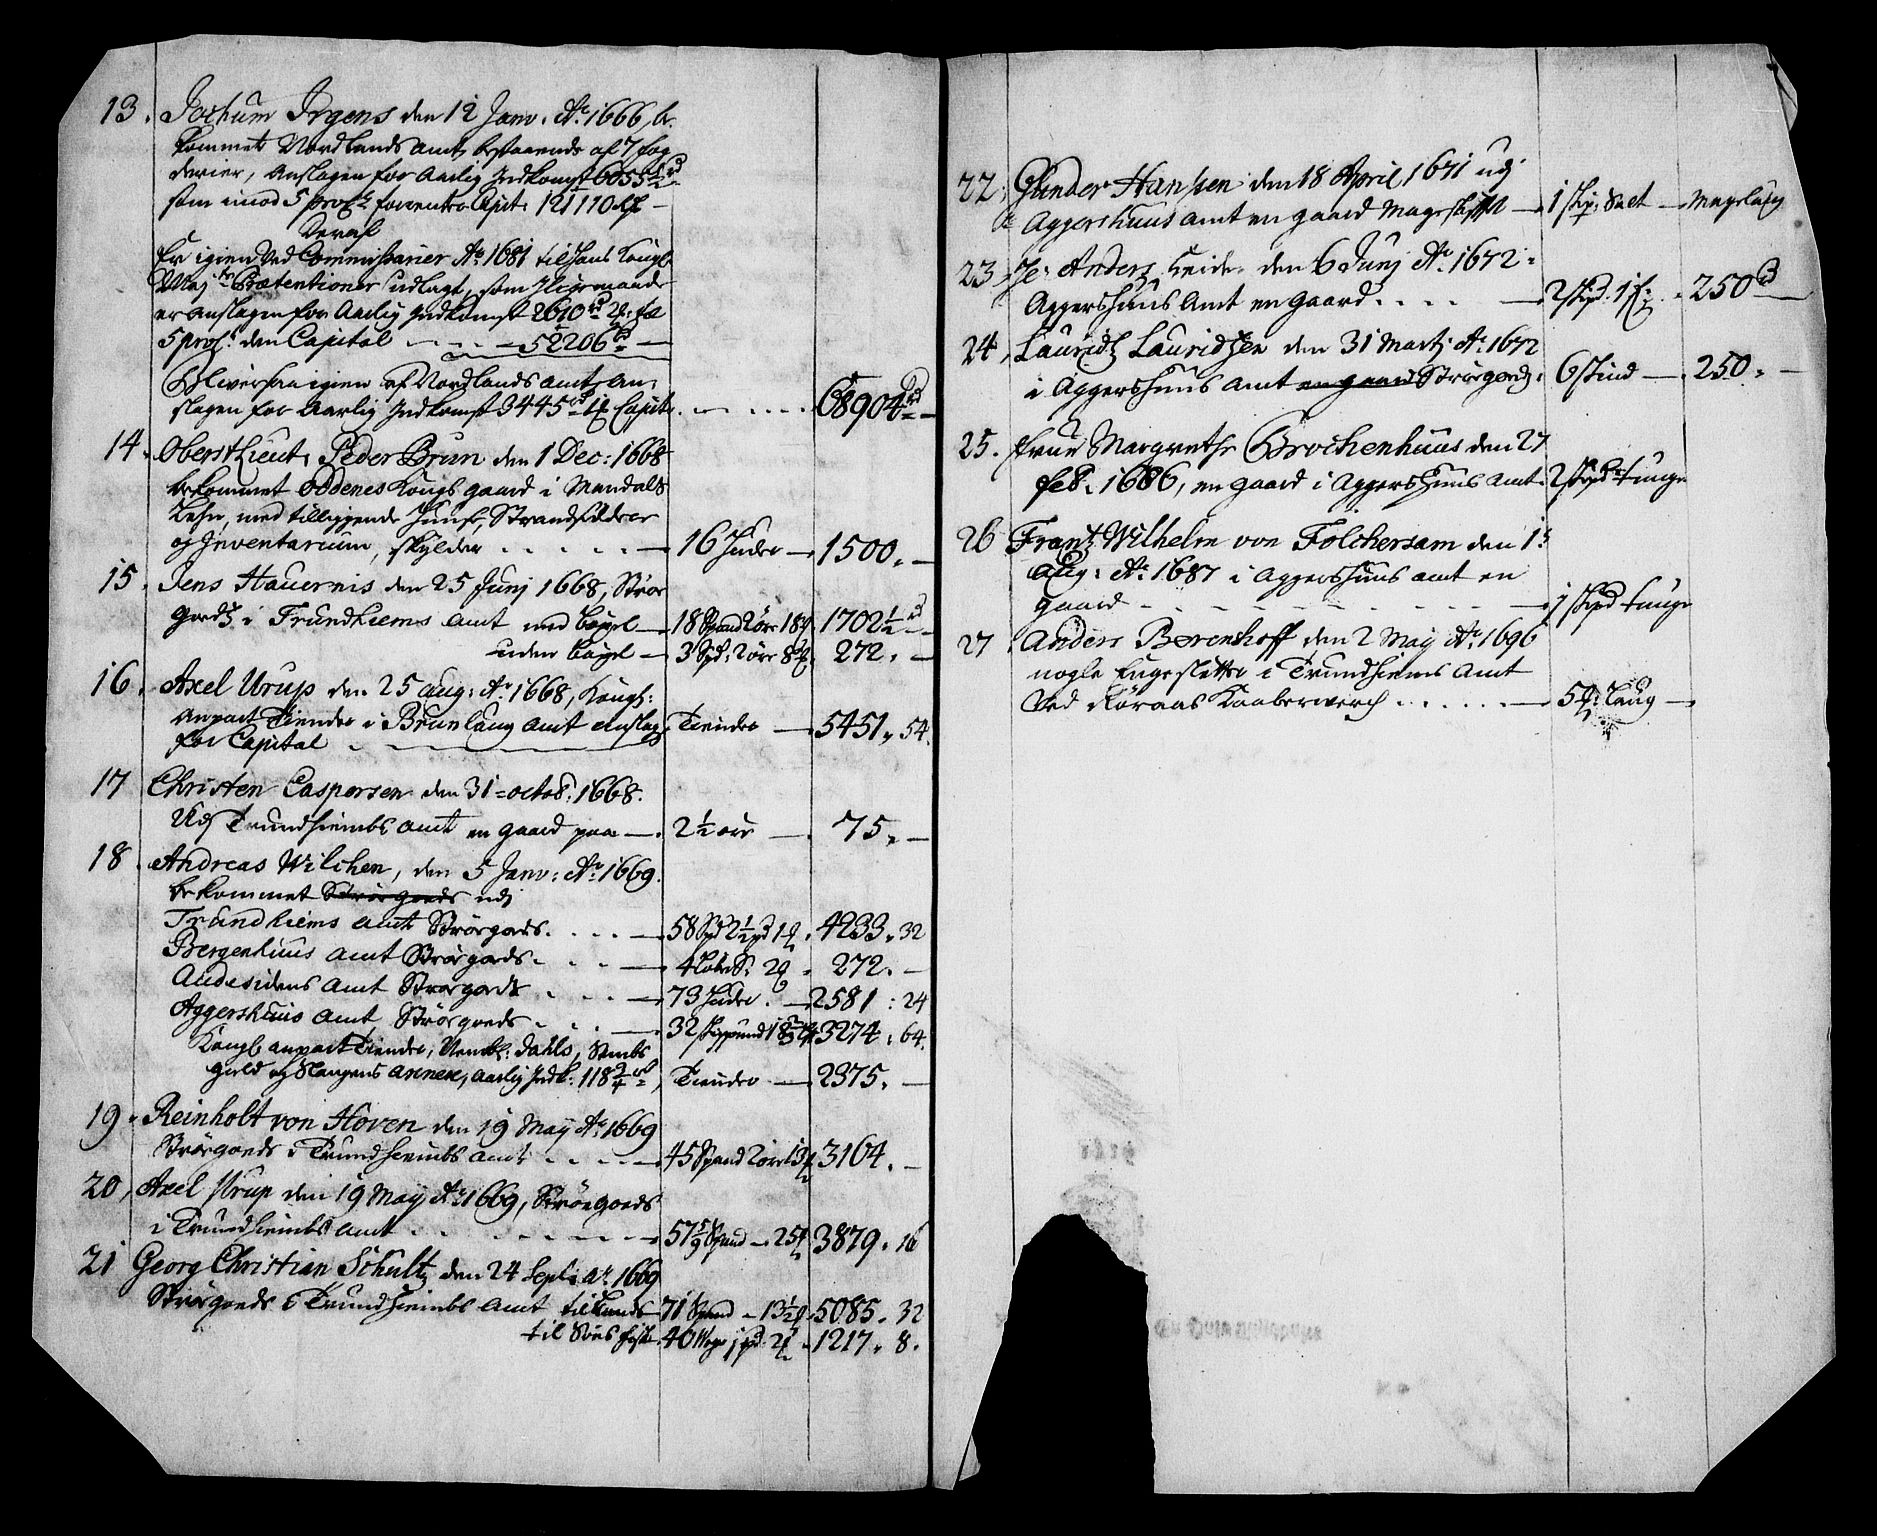 13. Jochum Irgens den 12 Janv. Ao. 1666, be
kommet Nordlands Amt, bestaaende af 7 fog
derier, Anslagen for Aarlig Indkomst 6055½ rd
som imod 5 proCt. forrenter Capit: 121110 rd –
Deraf
Er igien ved Commissarier Ao. 1681 til hans Kongl.
May.ts Prætentioner udlagt, som
er anslagen for Aarlig Indkomst 2610 rd
5 proCt. den Capital – – 52206 rd –
Bliver saa igien af Nordlands Amt, An-
slagen for Aarlig Indkomst 3445 rd Capit. . – . . . . 68904 rd –
14. Oberst Lieut. Peder Brun den 1 Dec: 1668
bekommet Oddenes Kongs gaard i Mandals
Lehn, med tilliggende Huusf. Strandsidder
og Inventarium, skylder . . . . . – 16 Huder – 1500. –
15. Jens Hauernis den 25 Junj 1668, Strøe
goedz i Trundhiems Amt med bøyel – 18 Spand 2 øre 18 1702½ rd –
uden bøyel – 3 Spd: 2 øre 8 272. –
16. Axel Urup den 25 aug: Ao. 1668, Kongl:
Anpart Tiender i Brunlaug Amt Anslag. Tiender – 5451. 54.
for Capital
17 Christen Caspersen den 31 octob: 1668.
Udj Trundhiembs Amt en gaard paa –. 2½ øre – 75. –
18. Andreas Wilchen, den 5 Janv: Ao. 1669.
bekommet Strøegoeds udj
Trundhiems amt Strøgoeds. . . . – 58 Spd 2½ 4233. 32
Bergenhuus Amt Strøgoeds. . . – 4 Løber 272. –
Andesidens Amt Strøgoeds . . . – 73 Huder. – 2581 : 24
Aggershuus Amt, Strøgoeds . . . – 32 skippund 3274. 64.
Kongl. anpart Tiender, Dahls,
og Slangens Annex, Aarlig Indk: 118¾ rd, Tiender – 2375. –
19. Reinholt von Hoven den 19 May Ao. 1669
Strøgoeds i Trundhiembs Amt . . . . – 45 Spand 2 øre 3164. –
20, Axel Urup den 19 May Ao. 1669, Strøegoeds
i Trundhiembs Amt . . . . . – . – 57 Spand – 3879. 16
21 Georg Christian Schultz den 24 Sept: Ao. 1669
Strøgoeds i Trundhiembs Amt til Lands – 71 Spand – 13½ 5085. 32
til Søes 40 Woge 1217. 8.
22. Gunder Hansen den 18 April 1671 udj
Aggershuus Amt en gaard – 1 skp: Salt – Mageskifte
23. Anders den 6 Junj Ao. 1672.
Aggershuus Amt en gaard. . . . – 2 skpd. 250 rd
24. Lauridtz Lauridtzen den 31 Martj Ao. 1672
i Aggershuus Amt en gaard Strøegoeds. 6 – 250. –
25. Frue Margrethe Brochenhuus den 27
feb. 1686, en gaard i Aggershuus Amt. 2 skpd tunge
26 Frantz Wilhelm von Folchersam den 13
Aug: Ao. 1687 i Aggershuus amt en
gaard – – – – – – 1 skpd tunge
27 Anders Berenhoff den 2 May Ao. 1696
nogle Engesletter i Trundhiems Amt
Ved Röraas Kaaberwerch . . . . . . – 5 Laug –